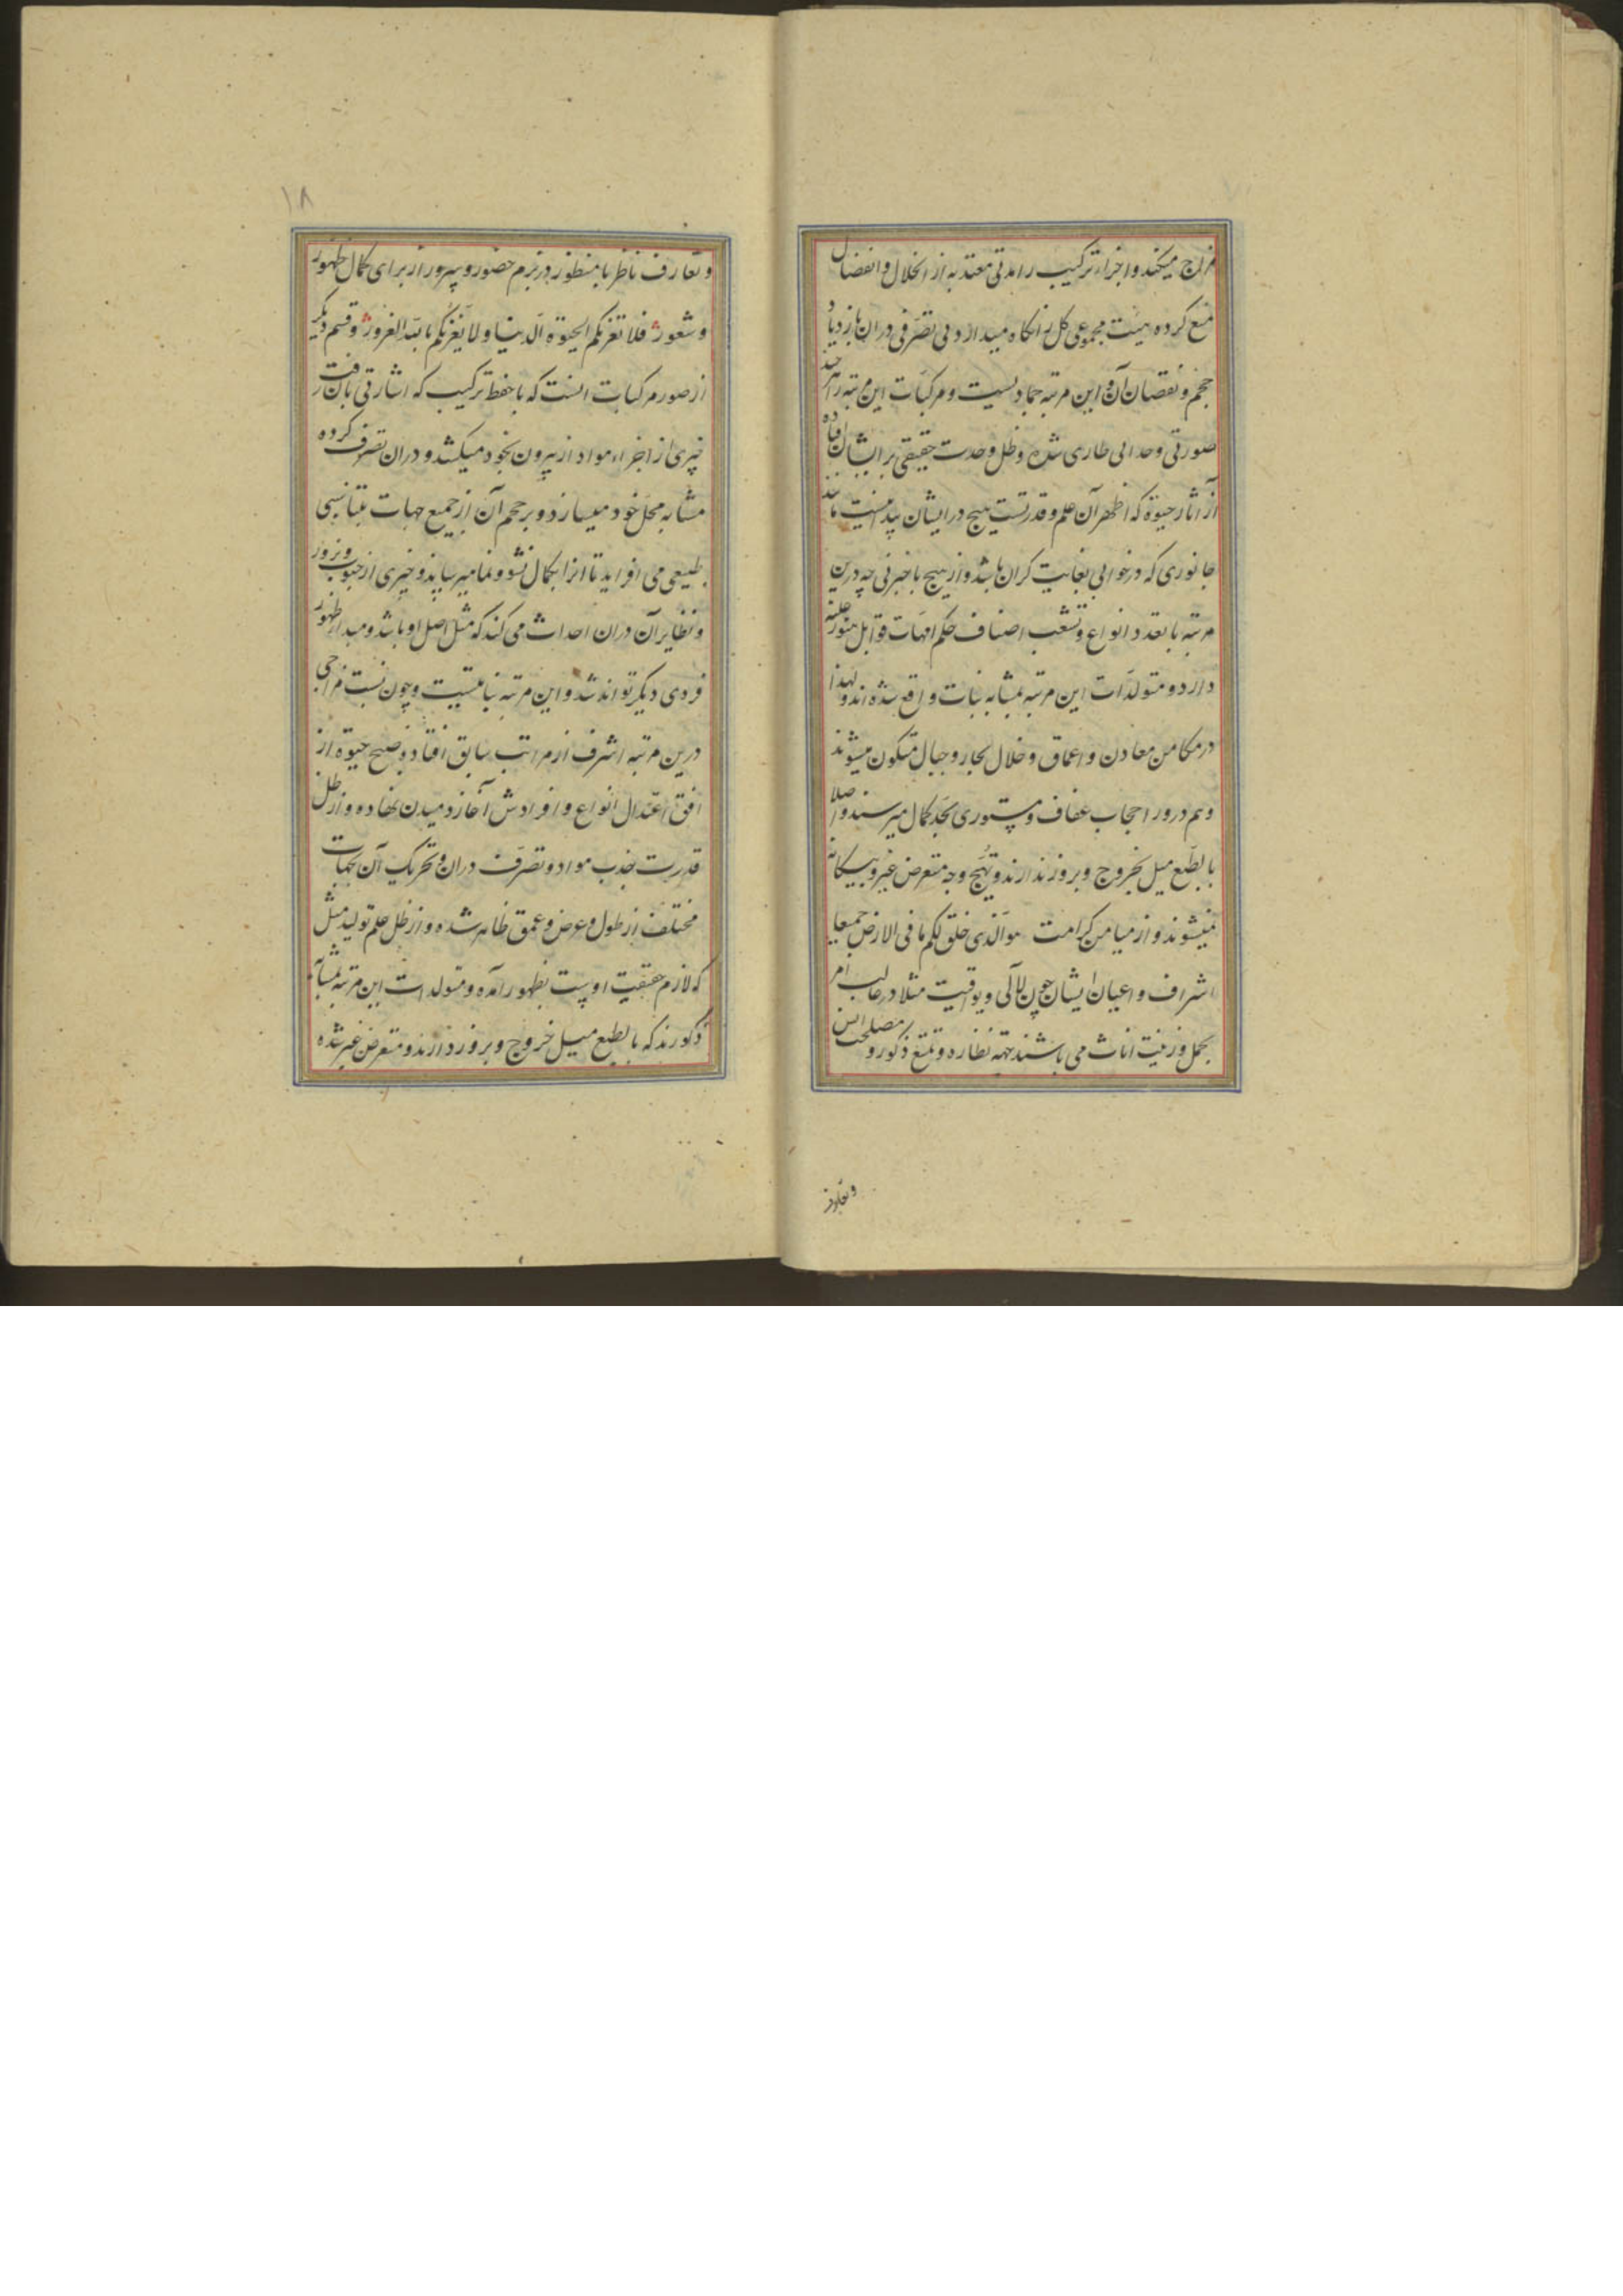 مزاج میکند و اجزاء ترکیب را مدتی معتد به از انحلال و انفصال
منع کرده هیئت مجموعی کل را نکاه میدارد بی تصرفی در ان بازدیاد
حجم و نقصان آن و این مرتبه جمادیست و مرکبات این مرتبه را هر چند
صورتی وحدانی طاری شده و ظل وحدت حقیقی بر ایشان افتاده
از آثار حیوة که اظهر آن علم و قدرتست هیچ در ایشان پیدا نیست مانند
جانوری که در خوابی بغایت کران باشد و از هیچ با خبر نی چه درین
مرتبه با تعدد انواع و تشعب اصناف حکم امهات قوابل هنوز غلبه
دارد و متولدات این مرتبه بمثابه بنات واقع شده اند و لهذا
در مکامن معادن و اعماق و خلال بحار و جبال متکون میشوند
و هم در ورا حجاب عفاف و مستوری بحد کمال میرسند و اصلا
بالطبع میل بخروج و بروز ندارند و بهیچ وجه متعرض غیر و بیکانه
نمیشوند و از میامن کرامت هو الذی خلق لکم ما فی الارض جمیعا
اشراف و اعیان ایشان چون لآلی و یواقیت مثلا در غالب امر
تجمل و زینت اناث می باشند جهة نظاره و تمتع ذکور و مصلحت انس
و تعارف
١٨
و تعارف ناظر با منظور در بزم حضور و سرور از برای کمال ظهور
و شعور فلا تغرنکم الحیوة الدنیا و لا یغرنکم بالله الغرور و قسم دیکر
از صور مرکبات آنست که با حفظ ترکیب که اشارتی بآن رفت
چیزی از اجزاء مواد از بیرون بخود میکشد و در ان تصرف کرده
مشابه محل خود میسازد و بر حجم آن از جمیع جهات بتناسبی
طبیعی می افزاید تا انرا بکمال نشو و نما میرساند و چیزی از حبوب و بزور
و نظایر آن در ان احداث می کند که مثل اصل او باشد و مبدا ظهور
فردی دیکر تواند شد و این مرتبه نباتیست و چون نسبت مزاجی
درین مرتبه اشرف از مراتب سابق افتاد و صبح حیوة از
افق اعتدال انواع و افرادش آغاز دمیدن نهاده و از ظل
قدرت جذب مواد و تصرف در ان و تحریک آن بجهات
مختلف از طول و عرض و عمق ظاهر شده و از ظل علم تولید مثل
که لازم حقیقت اوست بظهور آمده و متولدات این مرتبه بمثابه
ذکورند که بالطبع میل خروج و بروز دارند و متعرض غیر شده